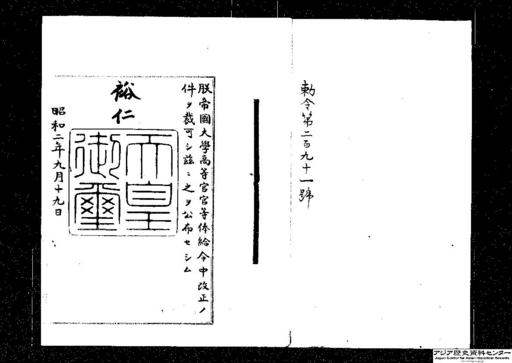 勅令第二百九十一號
朕帝國大學高等官官等俸給令中改正ノ
件ヲ裁可シ茲ニ之ヲ公布セシム
裕仁
天皇御璽
昭和二年九月十九日
アジア歴史資料センター
Japan Center for Asian Historical Records